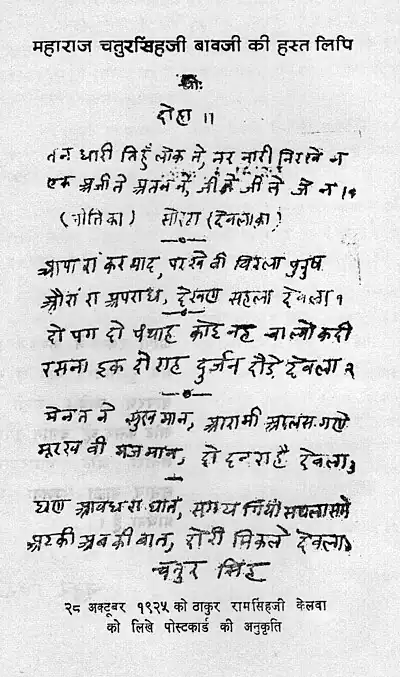 महाराज चतुरसिंहजी बावजी की हस्त लिपि
श्रीः
दोहा ॥
तन धारी तिहुँ लोक ने, नर नारी निरखे न
एक अनीते
(नीतिका) सोरठा (देवलाका)
आपा रां कर याद, परखे वी विरला पुरुष
औरां रा अपराध, देखण सहला देवला १
दो पग दो पंथाह कोई नह चाल्यो कदी
रसना इक दो राह दुर्जन दौड़े देवला २
मेनत ने सुख मान, आरामी आलस गणे
मूरख वी मजमान, दो दनरा है देवला ३
घण आवध रा घाव, समय
अटकी अबकी वात, दोरी निकले देवला
चतुर सिंह
२८ अक्टूबर १९२५ को ठाकुर रामसिंहजी केलवा
को लिखे पोस्टकार्ड की अनुकृति